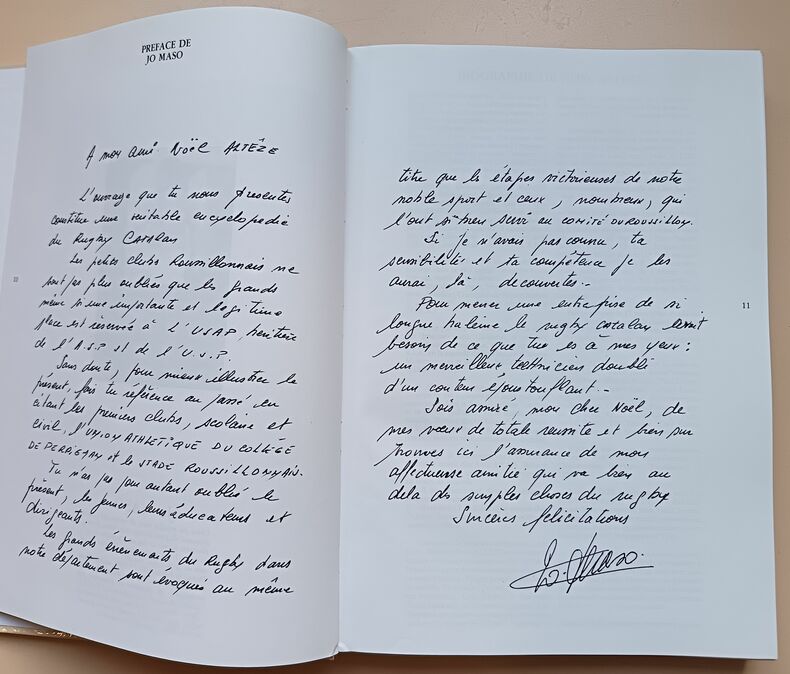 PREFACE DE
JO MASO
A mon ami Noël ALTÈZE
L'ouvrage que tu nous présentes
constitue une véritable encyclopédie
du Rugby CATALAN
Les petits clubs Roussillonnais ne
sont pas plus oubliés que les grands
même si une importante et légitime
place est réservée à L'USAP, héritière
de l'A.S.P et de l'U.S.P.
Sans doute, pour mieux illustrer le
présent, fais tu référence au passé en
citant les premiers clubs, scolaire et
civil, l'UNION ATHLETIQUE DU COLLÈGE
DE PERPIGNAN et le STADE ROUSSILLONNAIS.
Tu n'as pas pour autant oublié le
présent, les jeunes, leurs éducateurs et
dirigeants.
Les grands évènements du Rugby dans
notre département sont évoqués au même
10
titre que les étapes victorieuses de notre
noble sport et ceux, nombreux, qui
l'ont si bien servi au COMITÉ DU ROUSSILLON.
Si je n'avais pas connu, ta
sensibilité et ta compétence je les
aurai, là, découvertes..
Pour mener une entreprise de si
longue haleine le rugby catalan avait
besoin de ce que tu es à mes yeux :
un merveilleux technicien doublé
d'un conteur époustouflant..
Sois assuré, mon cher Noël, de
mes vœux de totale réussite et bien sur
trouves ici l'assurance de mon
affectueuse amitié qui va bien au
dela des simples choses du rugby
Sincères félicitations
Jo. Maso.
11